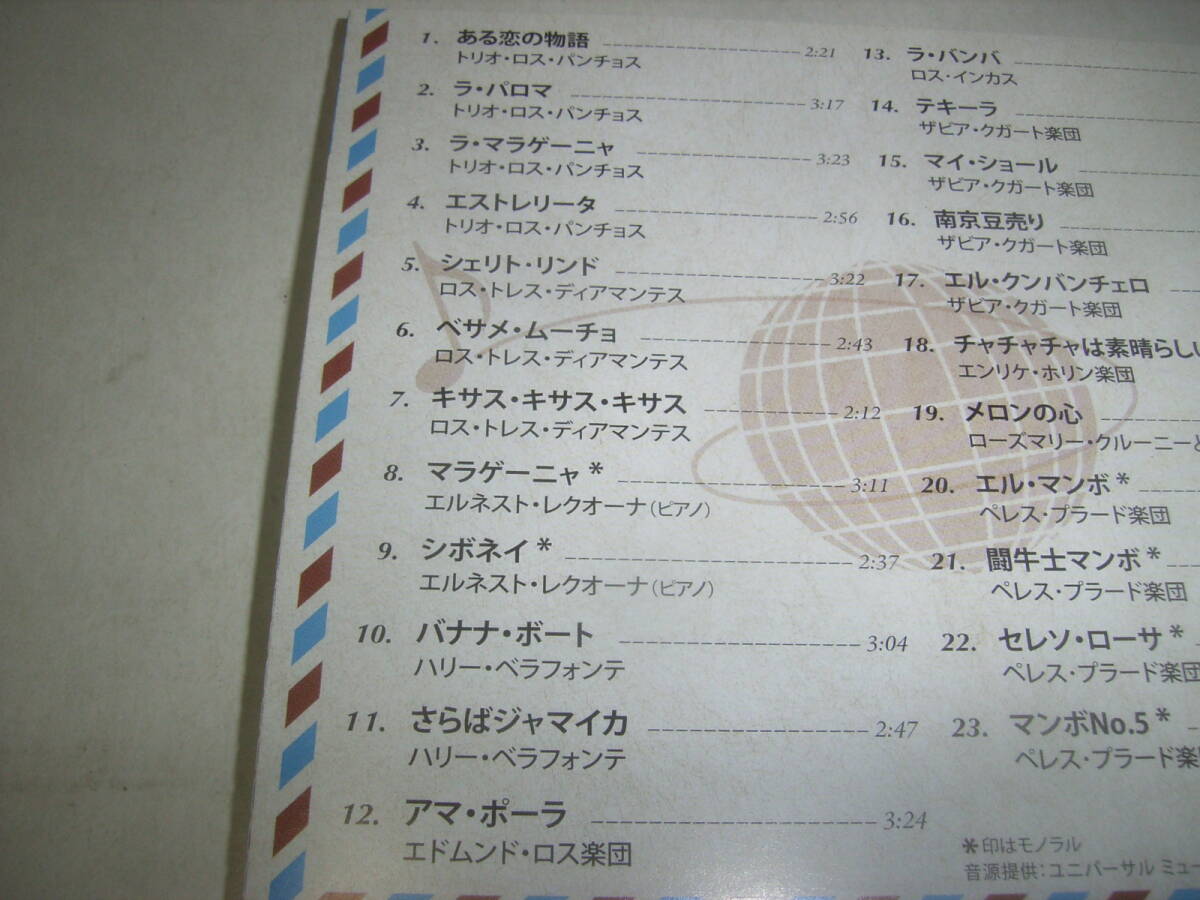 1. ある恋の物語 2:21
トリオ・ロス・パンチョス
2. ラ・パロマ 3:17
トリオ・ロス・パンチョス
3. ラ・マラゲーニャ 3:23
トリオ・ロス・パンチョス
4. エストレリータ 2:56
トリオ・ロス・パンチョス
5. シェリト・リンド 3:22
ロス・トレス・ディアマンテス
6. ベサメ・ムーチョ 2:43
ロス・トレス・ディアマンテス
7. キサス・キサス・キサス 2:12
ロス・トレス・ディアマンテス
8. マラゲーニャ* 3:11
エルネスト・レクオーナ(ピアノ)
9. シボネイ* 2:37
エルネスト・レクオーナ(ピアノ)
10. バナナ・ボート 3:04
ハリー・ベラフォンテ
11. さらばジャマイカ 2:47
ハリー・ベラフォンテ
12. アマ・ポーラ 3:24
エドムンド・ロス楽団
13. ラ・バンバ
ロス・インカス
14. テキーラ
ザビア・クガート楽団
15. マイ・ショール
ザビア・クガート楽団
16. 南京豆売り
ザビア・クガート楽団
17. エル・クンバンチェロ
ザビア・クガート楽団
18. チャチャチャは素晴らしい
エンリケ・ホリン楽団
19. メロンの心
ローズマリー・クルーニーと
20. エル・マンボ*
ペレス・プラード楽団
21. 闘牛士マンボ*
ペレス・プラード楽団
22. セレソ・ローサ*
ペレス・プラード楽団
23. マンボNo.5*
ペレス・プラード楽
*印はモノラル
音源提供:ユニバーサル ミュー